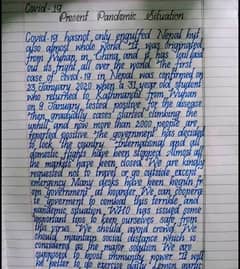 Covid-19
Present Pandemic Situation
Covid-19 has not only engulfed Nepal but
also almost whole world. It was originated
from Wuhan, in China, and it has spread
out its fright all over the world. The first
case of covid-19 in Nepal was confirmed on
23 January 2020 when a 31 year old student
who returned to Kathmandu from Wuhan
on 9 January tested positive for the disease
Then gradually cases started climbing the
uphill and now more than 2000 people are
reported positive. The government has decided
to lock the country. International and all
domestic flights have been stopped. Almost all
the market have been closed. We are kindly
requested not to travel or go outside except
emergency. Many desks have been begun by
the government at boarder. We can cooperate
te goverment to combat this terrible and
pandemic situation. WHO has issued some
important tips to keep ourselves safe from
this virus. We should avoid crowd. We
should maintain social distance which is
considering as the major solution. We are
supposed to boost immunity power. It will
be better to do exercise daily. Lemon, garlic